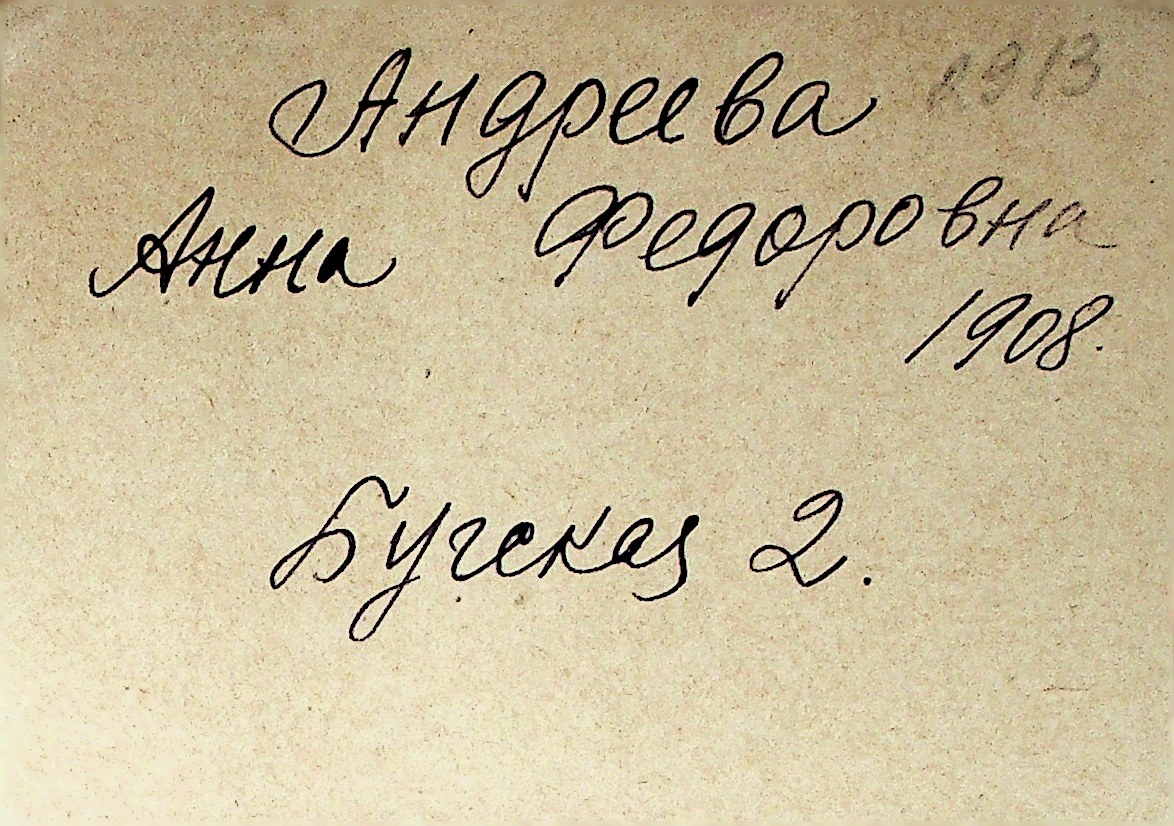 Андреева
Анна Федоровна
1908.
Бугская 2.